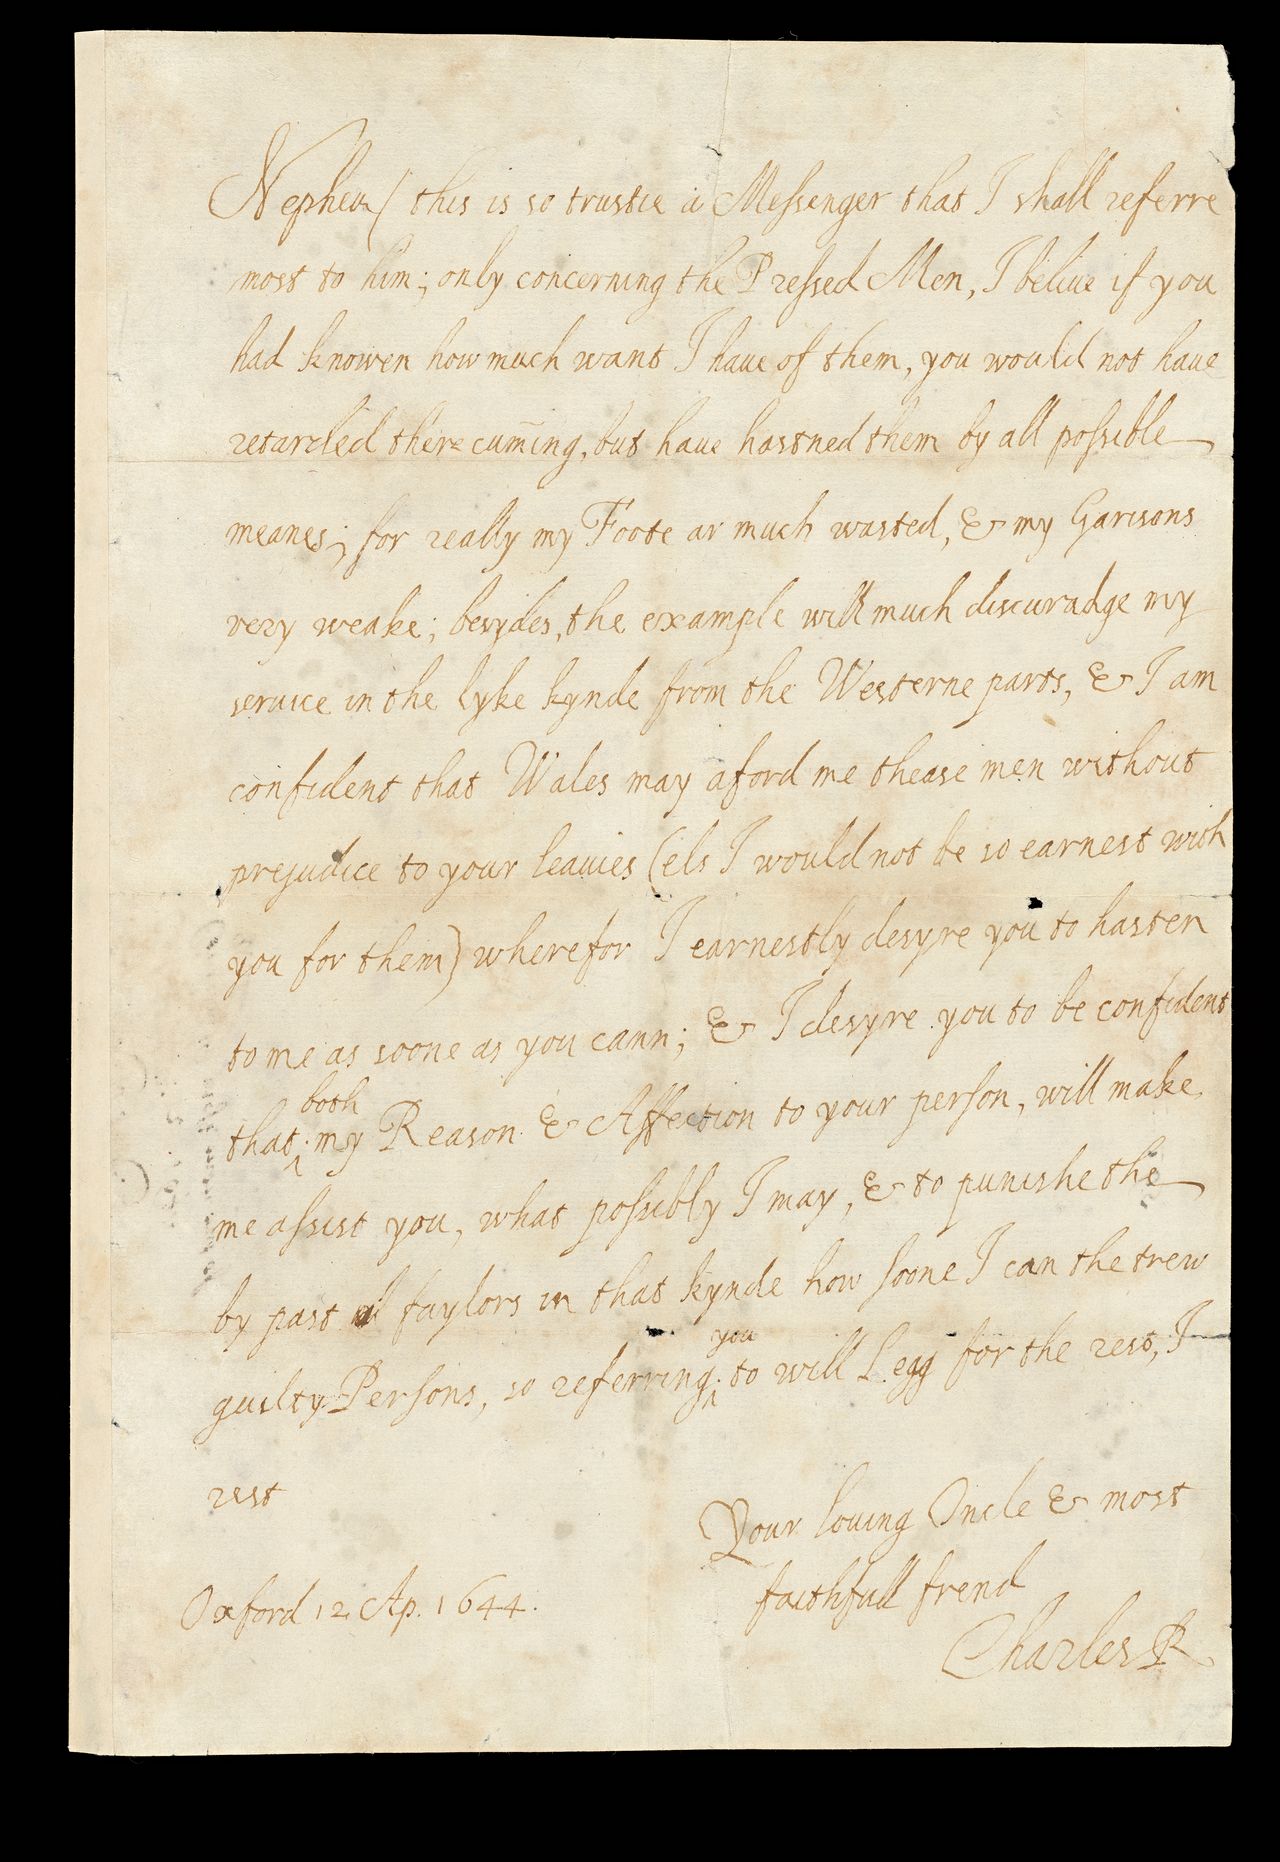 Nepheu/ this is so trustie a Messenger that I shall referre
most to him; only concerning the Pressed Men, I beliue if you
had knowen how much want I haue of them, you would not haue
retarded there cum̄ing, but haue hastned them by all possible
meanes; for really my Foote ar much wasted, & my Garisons
very weake; besydes, the example will much discuradge my
seruice in the lyke kynde from the Westerne parts, & I am
confident that Wales may aford me thease men without
prejudice to your leauies (els I would not be so earnest with
you for them) wherefor I earnestly desyre you to hasten
to me as soone as you cann; & I desyre you to be confident
both
that my Reason & Affection to your person, will make
me assist you, what possibly I may, & to punishe the
by past faylors in that kynde how soone I can the trew
you
guilty Persons, so referring to will Legg for the rest, I
rest
Your louing Oncle & most
faithfull frend
Charles R
Oxford 12 Ap. 1644.